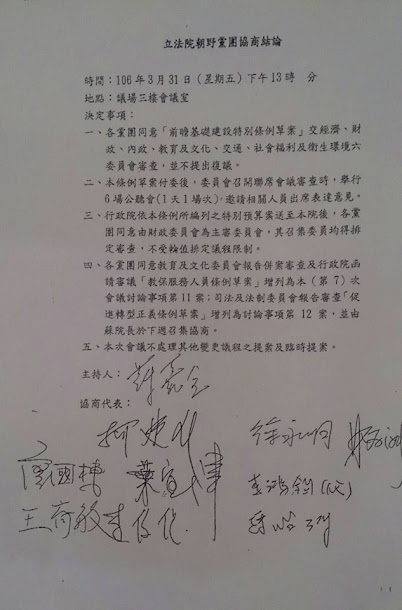 立法院朝野黨團協商結論
時間：106年3月31日(星期五)下午13時　分
地點：議場三樓會議室
決定事項：
一、各黨團同意「前瞻基礎建設特別條例草案」交經濟、財
政、內政、教育及文化、交通、社會福利及衛生環境六
委員會審查，並不提出復議。
二、本條例草案付委後，委員會召開聯席會議審查時，舉行
6場公聽會(1天1場次)，邀請相關人員出席表達意見。
三、行政院依本條例所編列之特別預算案送至本院後，各黨
團同意由財政委員會為主審委員會，其召集委員均得排
定審查，不受輪值排定議程限制。
四、各黨團同意教育及文化委員會報告併案審查及行政院函
請審議「教保服務人員條例草案」增列為本(第7)次
會議討論事項第11案；司法及法制委員會報告審查「促
進轉型正義條例草案」增列為討論事項第12案，並由
蘇院長於下週召集協商。
五、本次會議不處理其他變更議程之提案及臨時提案。
主持人：蘇嘉全
協商代表：
柯建銘 徐永明
廖國棟 葉宜津 李鴻鈞(代)
王育敏 李俊俋